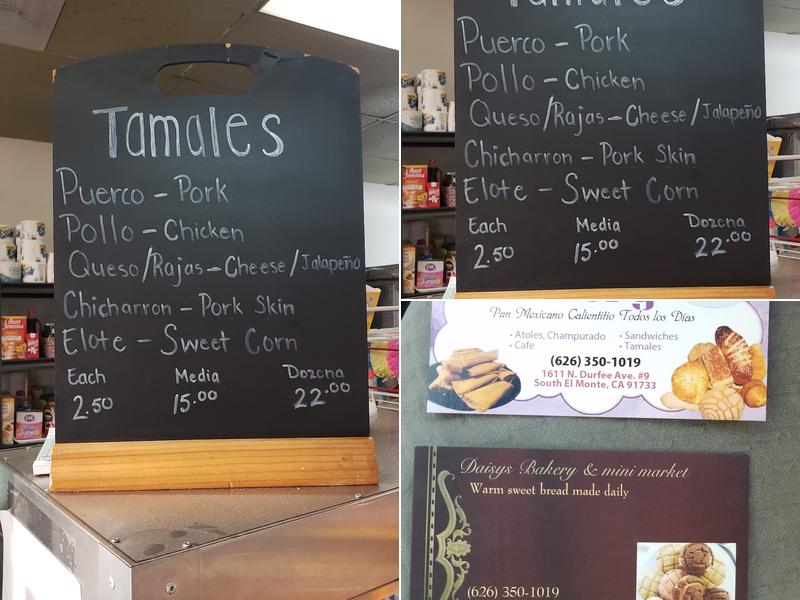 Tamales
Puerco - Pork
Pollo - Chicken
Queso/Rajas - Cheese/Jalapeño
Chicharron - Pork Skin
Elote - Sweet Corn
Each Media Dozena
2.50 15.00 22.00
Tamales
Puerco - Pork
Pollo - Chicken
Queso/Rajas - Cheese/Jalapeño
Chicharron - Pork Skin
Elote - Sweet Corn
Each Media Dozena
2.50 15.00 22.00
Pan Mexicano Calientitio Todos los Dias
• Atoles, Champurado • Sandwiches
• Cafe • Tamales
(626) 350-1019
1611 N. Durfee Ave. #9
South El Monte, CA 91733
Daisys Bakery & mini market
Warm sweet bread made daily
(626) 350-1019
Aunt Jemima
Aunt Jemima